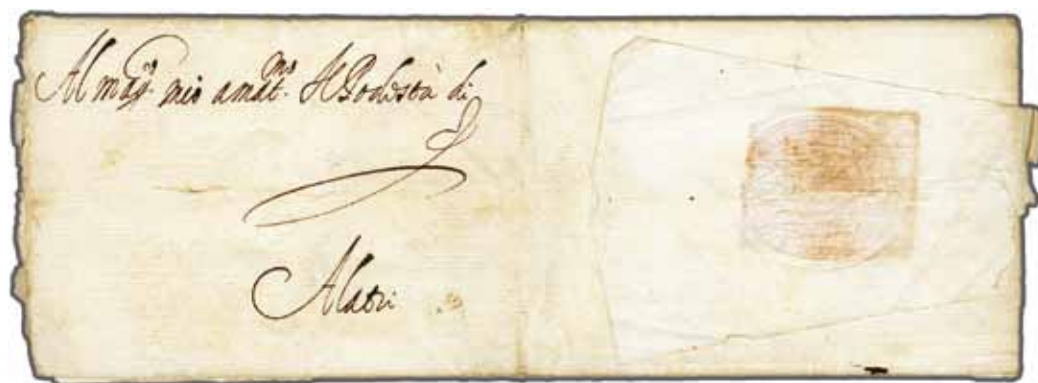 Al mag.co mio amat.mo Il Podestà di
Alatri